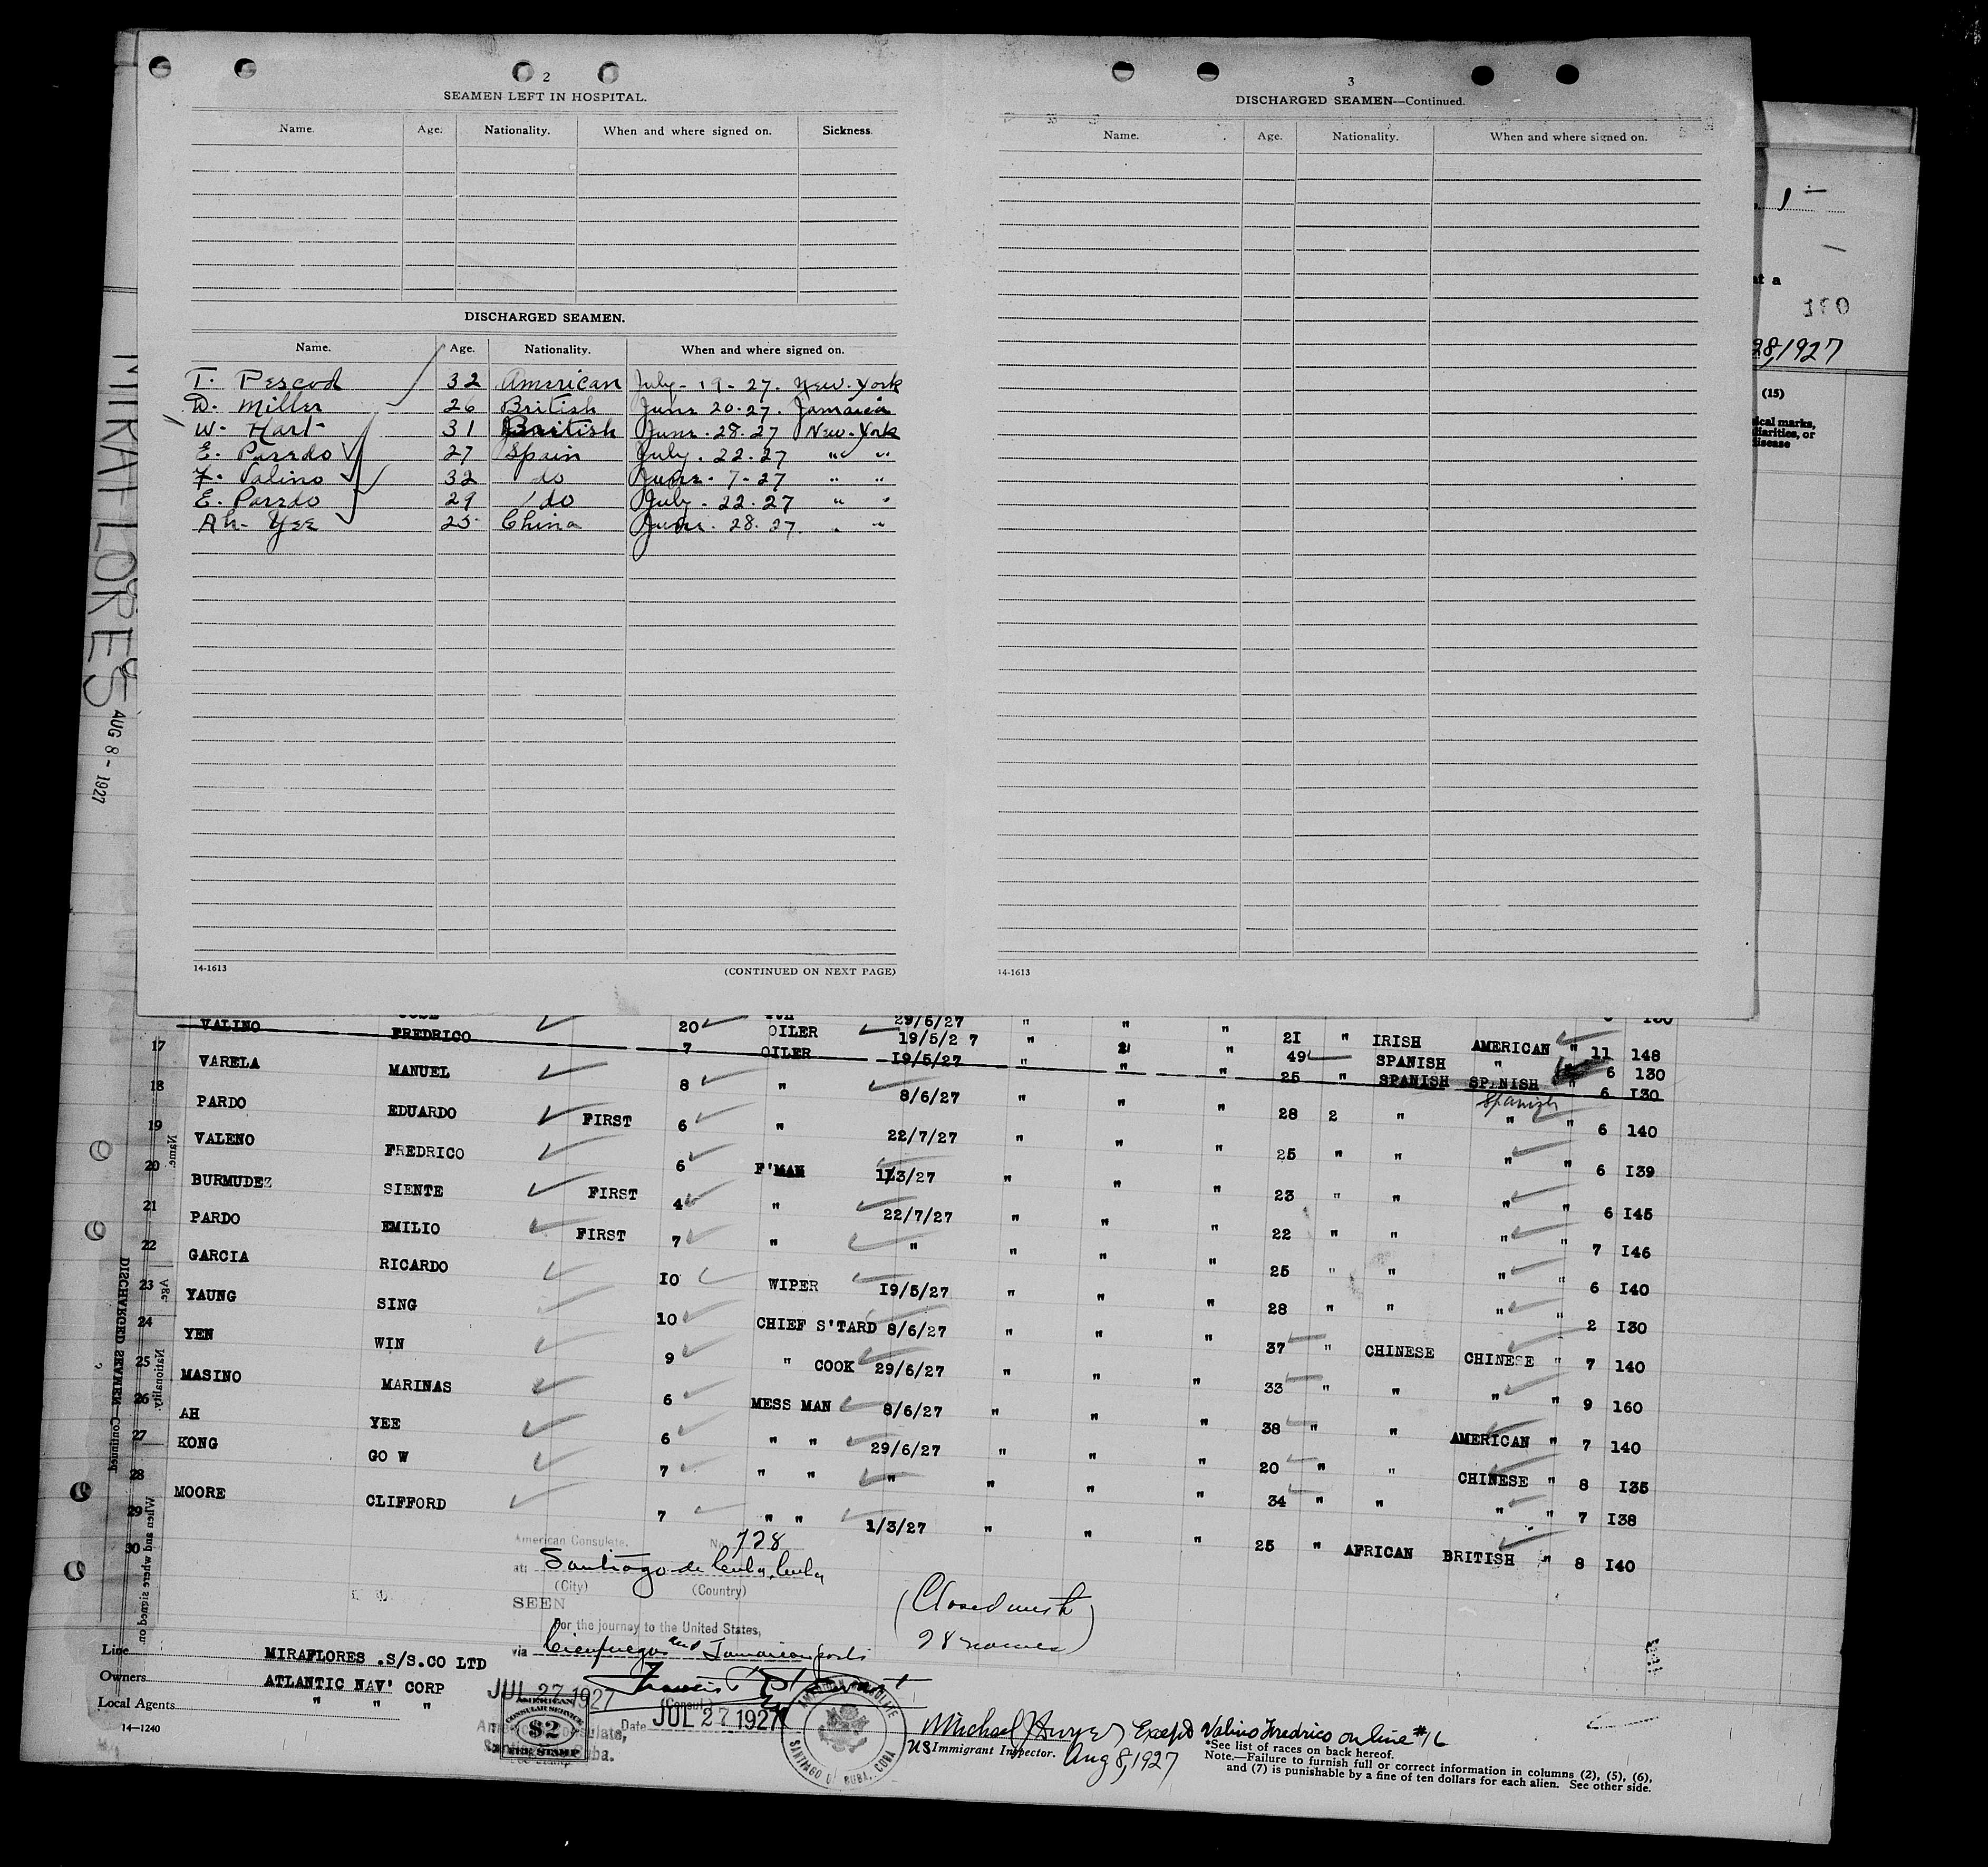 2
SEAMEN LEFT IN HOSPITAL.
Name. Age. Nationality. When and where signed on. Sickness.
DISCHARGED SEAMEN.
Name. Age. Nationality. When and where signed on.
T. Pescod 32 American July - 19 - 27. New. York
D. Miller 26 British June 20. 27. Jamaica
W. Hart 31 British June. 28. 27 New. York
E. Paredo 27 Spain July. 22. 27 " "
F. Valino 32 do June. 7 - 27 " "
E. Paredo 29 do July. 22. 27 " "
Ah. Yee 25 China June. 28. 27. " "
14-1613
(CONTINUED ON NEXT PAGE)
3
DISCHARGED SEAMEN—Continued.
Name. Age. Nationality. When and where signed on.
14-1613
1
at a
28, 1927
(15)
MIRAFLORES
AUG 8 - 1927
29/6/27 " " "
20 OILER 19/5/27 " " " 21 " IRISH AMERICAN " 11 148
VALINO FREDRICO 7 OILER 19/5/27 " " " 49 SPANISH " 6 130
25 " SPANISH SPANISH " 6 130
Spanish
17 VARELA MANUEL 8 " 8/6/27 " " " 28 2 " " 6 140
18 PARDO EDUARDO FIRST 6 " 22/7/27 " " " 25 " " " " 6 139
19 VALENO FREDRICO 6 F'MAN " " " 23 " " " " 6 145
20 BURMUDEZ SIENTE FIRST 4 " 22/7/27 " " " 22 " " " " 7 146
21 PARDO EMILIO FIRST 7 " " " " " 25 " " " " 6 140
22 GARCIA RICARDO 10 WIPER 19/5/27 " " " 28 " " " " 2 130
23 YAUNG SING 10 CHIEF S'TARD 8/6/27 " " " 37 " CHINESE CHINESE " 7 140
24 YEN WIN 9 " COOK 29/6/27 " " " 33 " " " " 9 160
25 MASINO MARINAS 6 MESS MAN 8/6/27 " " " 38 " " AMERICAN " 7 140
26 AH YEE 6 " " 29/6/27 " " " 20 " " CHINESE " 8 135
27 KONG GO W 7 " " " " " " 34 " " " " 7 138
28 MOORE CLIFFORD 7 " " 1/3/27 " " " 25 " AFRICAN BRITISH " 8 140
29
30
Name.
Age.
Nationality.
When and where signed on.
DISCHARGED SEAMEN—Continued.
American Consulate, No. 728
at: Santiago de Cuba, Cuba
(City) (Country)
SEEN
For the journey to the United States,
via Cienfuegos and Jamaican ports
(Closed with
28 names)
(Consul.)
JUL 27 1927
Date JUL 27 1927
AMERICAN
CONSULAR SERVICE
$2
FEE STAMP
American Consulate,
Santiago de Cuba.
AMERICAN CONSULATE
SANTIAGO DE CUBA, CUBA
Line MIRAFLORES .S/S.CO LTD
Owners ATLANTIC NAV' CORP
Local Agents " " "
14—1240
Michael Dwyer Except Valino Fredrico on line #16
US Immigrant Inspector. Aug 8, 1927
*See list of races on back hereof.
Note.—Failure to furnish full or correct information in columns (2), (5), (6),
and (7) is punishable by a fine of ten dollars for each alien. See other side.